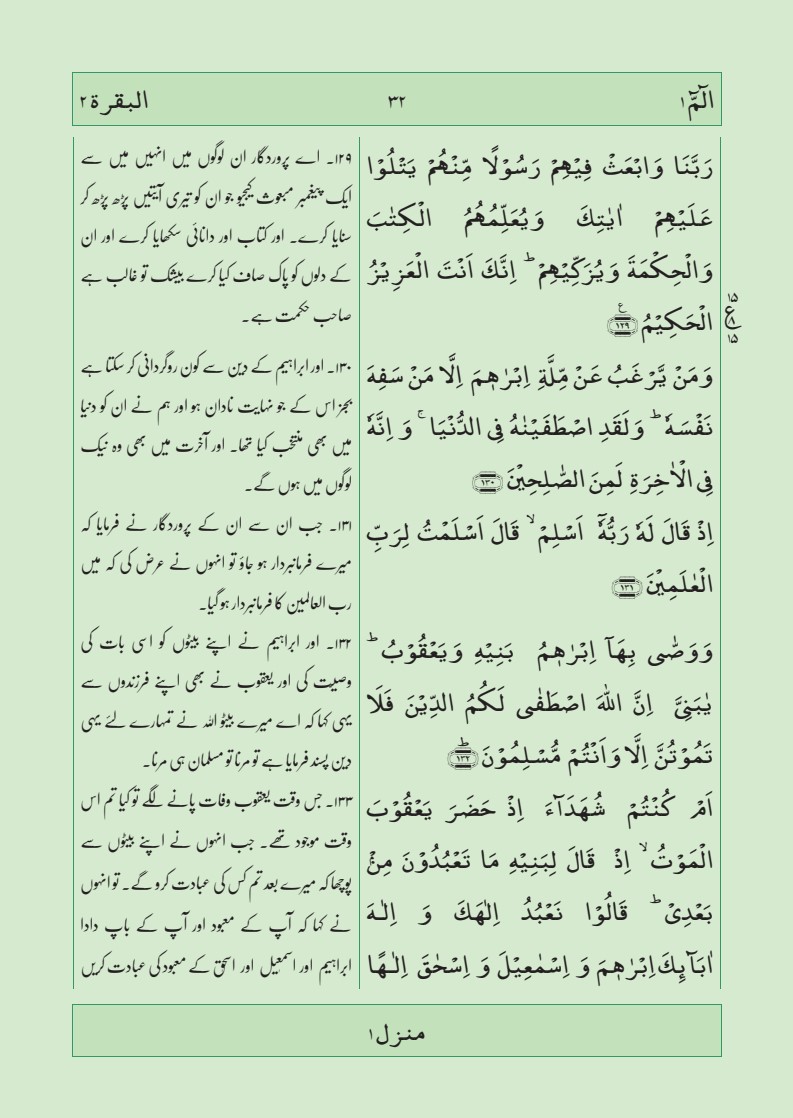 الٓمّٓ ۱
۳۲
البقرة ۲
رَبَّنَا وَابْعَثْ فِيْهِمْ رَسُوْلًا مِّنْهُمْ يَتْلُوْا
عَلَيْهِمْ اٰيٰتِكَ وَيُعَلِّمُهُمُ الْكِتٰبَ
وَالْحِكْمَةَ وَيُزَكِّيْهِمْ ؕ اِنَّكَ اَنْتَ الْعَزِيْزُ
الْحَكِيْمُ ﴿۱۲۹﴾ ع
۱۵
ع
۸
۱۵
وَمَنْ يَّرْغَبُ عَنْ مِّلَّةِ اِبْرٰهٖمَ اِلَّا مَنْ سَفِهَ
نَفْسَهٗ ؕ وَلَقَدِ اصْطَفَيْنٰهُ فِى الدُّنْيَا ۚ وَ اِنَّهٗ
فِى الْاٰخِرَةِ لَمِنَ الصّٰلِحِيْنَ ﴿۱۳۰﴾
اِذْ قَالَ لَهٗ رَبُّهٗۤ اَسْلِمْ ۙ قَالَ اَسْلَمْتُ لِرَبِّ
الْعٰلَمِيْنَ ﴿۱۳۱﴾
وَوَصّٰى بِهَآ اِبْرٰهٖمُ بَنِيْهِ وَيَعْقُوْبُ ؕ
يٰبَنِىَّ اِنَّ اللّٰهَ اصْطَفٰى لَكُمُ الدِّيْنَ فَلَا
تَمُوْتُنَّ اِلَّا وَاَنْتُمْ مُّسْلِمُوْنَ ﴿۱۳۲﴾ ؕ
اَمْ كُنْتُمْ شُهَدَآءَ اِذْ حَضَرَ يَعْقُوْبَ
الْمَوْتُ ۙ اِذْ قَالَ لِبَنِيْهِ مَا تَعْبُدُوْنَ مِنْۢ
بَعْدِىْ ؕ قَالُوْا نَعْبُدُ اِلٰهَكَ وَ اِلٰهَ
اٰبَآئِكَ اِبْرٰهٖمَ وَ اِسْمٰعِيْلَ وَ اِسْحٰقَ اِلٰهًا
۱۲۹۔ اے پروردگار ان لوگوں میں انہیں میں سے
ایک پیغمبر مبعوث کیجیو جو ان کو تیری آیتیں پڑھ پڑھ کر
سنایا کرے۔ اور کتاب اور دانائی سکھایا کرے اور ان
کے دلوں کو پاک صاف کیا کرے بیشک تو غالب ہے
صاحب حکمت ہے۔
۱۳۰۔ اور ابراہیم کے دین سے کون روگردانی کر سکتا ہے
بجز اس کے جو نہایت نادان ہو اور ہم نے ان کو دنیا
میں بھی منتخب کیا تھا۔ اور آخرت میں بھی وہ نیک
لوگوں میں ہوں گے۔
۱۳۱۔ جب ان سے ان کے پروردگار نے فرمایا کہ
میرے فرمانبردار ہو جاؤ تو انہوں نے عرض کی کہ میں
رب العالمین کا فرمانبردار ہو گیا۔
۱۳۲۔ اور ابراہیم نے اپنے بیٹوں کو اسی بات کی
وصیت کی اور یعقوب نے بھی اپنے فرزندوں سے
یہی کہا کہ اے میرے بیٹو اللہ نے تمہارے لئے یہی
دین پسند فرمایا ہے تو مرنا تو مسلمان ہی مرنا۔
۱۳۳۔ جس وقت یعقوب وفات پانے لگے تو کیا تم اس
وقت موجود تھے۔ جب انہوں نے اپنے بیٹوں سے
پوچھا کہ میرے بعد تم کس کی عبادت کرو گے۔ تو انہوں
نے کہا کہ آپ کے معبود اور آپ کے باپ دادا
ابراہیم اور اسمٰعیل اور اسحٰق کے معبود کی عبادت کریں
منزل ۱